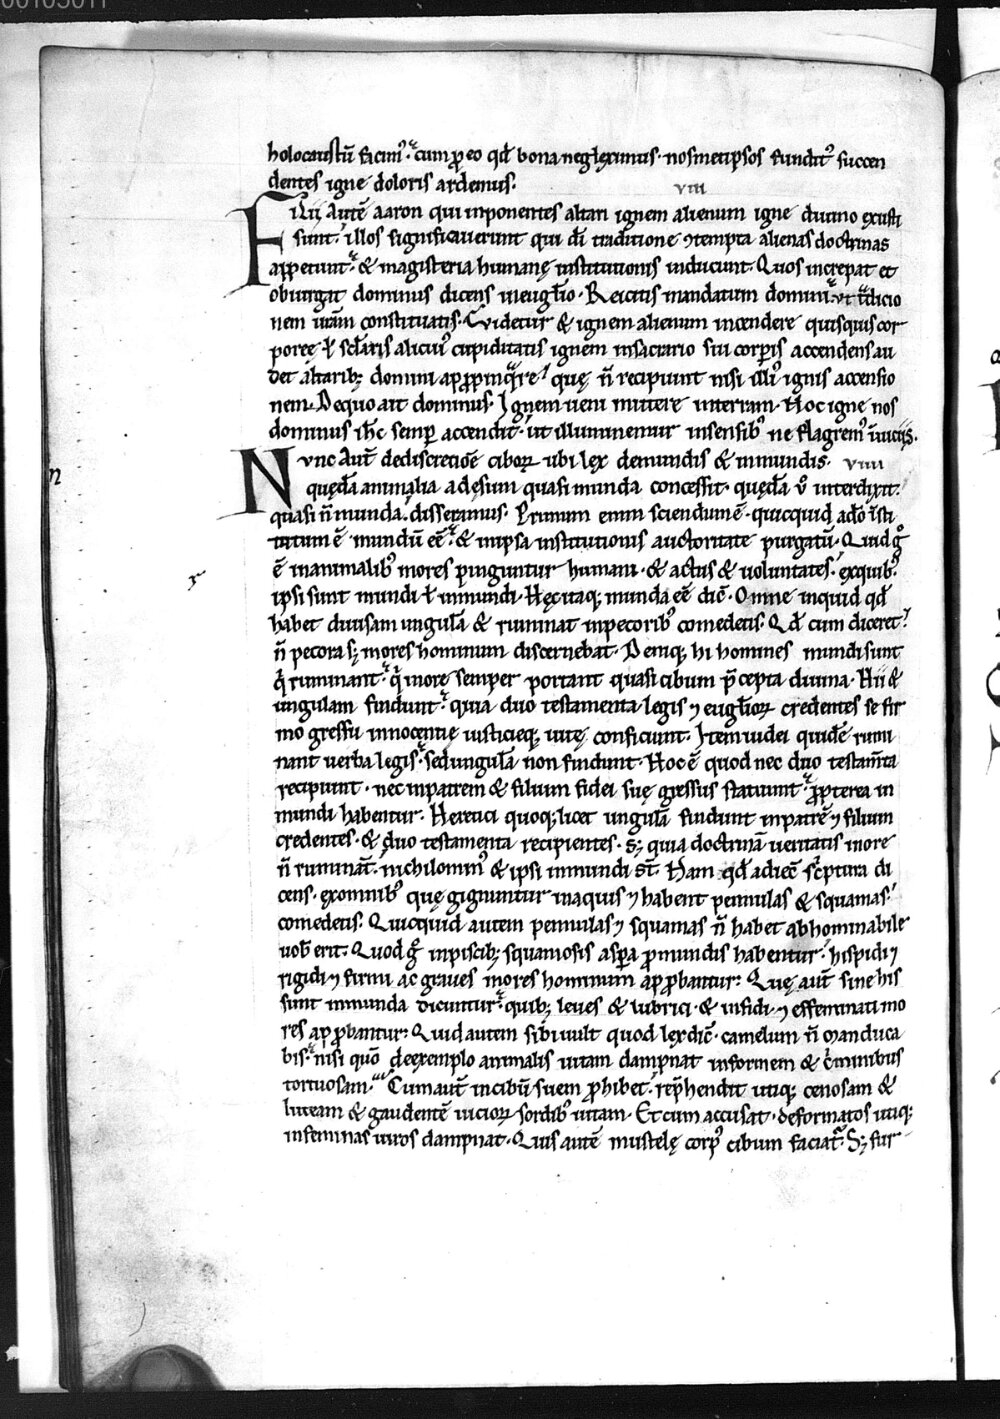 holocaustū facim᷒. cum ꝓ eo qđ bona negleximus. nosmetipsos fundit᷒ succen
dentes igne doloris ardemus.
viii
Filii Autē aaron qui inponentes altari ignem alienum igne diuino exusti
sunt. illos significauerunt qui dī traditione ⁊tempta alienas doctrinas
appetunt. & magisteria humanę institutionis inducunt. Quos increpat et
obiurgat dominus dicens ineuglio. Reicitis mandatum domini. ut tᵃdicio
nem urām constituatis. Videtur & ignem alienum incendere quisquis cor
poreę ł sclaris alicui᷒ cupiditatis ignem insacrario sui corꝑis accendens au
det altarib; domini apꝓpinqᵃre. quę n̄ recipiunt nisi illi᷒ ignis accensio
nem. Dequo ait dominus. Ignem ueni mittere interram. Hoc igne nos
dominus ihc̄ semꝑ accendit. ut illuminemur insensib᷒ ne flagrem᷒ īuiciis.
Nunc Aut̄ dediscretiōe ciboꝝ ubi lex demundis & inmundis. viiii
quędā animalia adesum quasi munda concessit. quędā ů interdixit.
quasi n̄ munda. disseramus. Primum enim sciendum ē. quicquid ado īsti
tutum ē mundū eē. & inipsa institutionis auctoritate purgatū. Quid gͦ
ē inanimalib᷒ mores pinguntur humani. & actus & uoluntates. exquib᷒
ipsi sunt mundi ł inmundi. Hęc itaq; munda eē dic̄. Omne inquid qđ
habet diuisam ungulā & ruminat inpecorib᷒ comedetis. Qđ cum diceret.
n̄ pecora s; mores hominum discernebat. Deniq; hi homines mundi sunt
q̇ ruminant. q̇ inore semper portant quasi cibum p̄cepta diuina. Hii &
ungulam findunt. quia duo testamenta legis ⁊ euglioꝝ credentes se fir
mo gressu innocentię iusticieq; uitę conficiunt. Item iudei quidē rumi
nant uerba legis. sed ungulā non findunt. Hoc ē quod nec duo testamt̄a
recipiunt. nec inpatrem & filium fidei suę gressus statuunt. ꝓpterea in
mundi habentur. Heretici quoq; licet ungulā findunt inpatrē ⁊ filium
credentes. & duo testamenta recipientes. s; quia doctrinā ueritatis inore
n̄ rumināt. nichilomin᷒ & ipsi inmundi st̄. Nam qđ adiec̄ scͥptura di
cens. exomnib᷒ quę gignuntur inaquis ⁊ habent pennulas & squamas.
comedetis. Quicquid autem pennulas ⁊ squamas n̄ habet abhominabile
uob̄ erit. Quod gͦ inpiscib; squamosis aspa ꝓmundis habentur. hispidi ⁊
rigidi ⁊ firmi ac graues mores hominum apꝓbantur. Quę aut̄ sine his
sunt inmunda dicuntur. quib; leues & lubrici. & infidi. ⁊ effeminati mo
res apꝓbantur. Quid autem sibi uult quod lex dic̄. camelum n̄ manduca
bis. nisi quō deexemplo animalis uitam dampnat informem & cͥminibus
tortuosam. Cum aut̄ incibū suem ꝓhibet. rep̄hendit utiq; cenosam &
luteam & gaudentē uicioꝝ sordib᷒ uitam. Et cum accusat. deformatos utiq;
infeminas uiros dampnat. Quis autē mustelę corp᷒ cibum faciat. S; fur